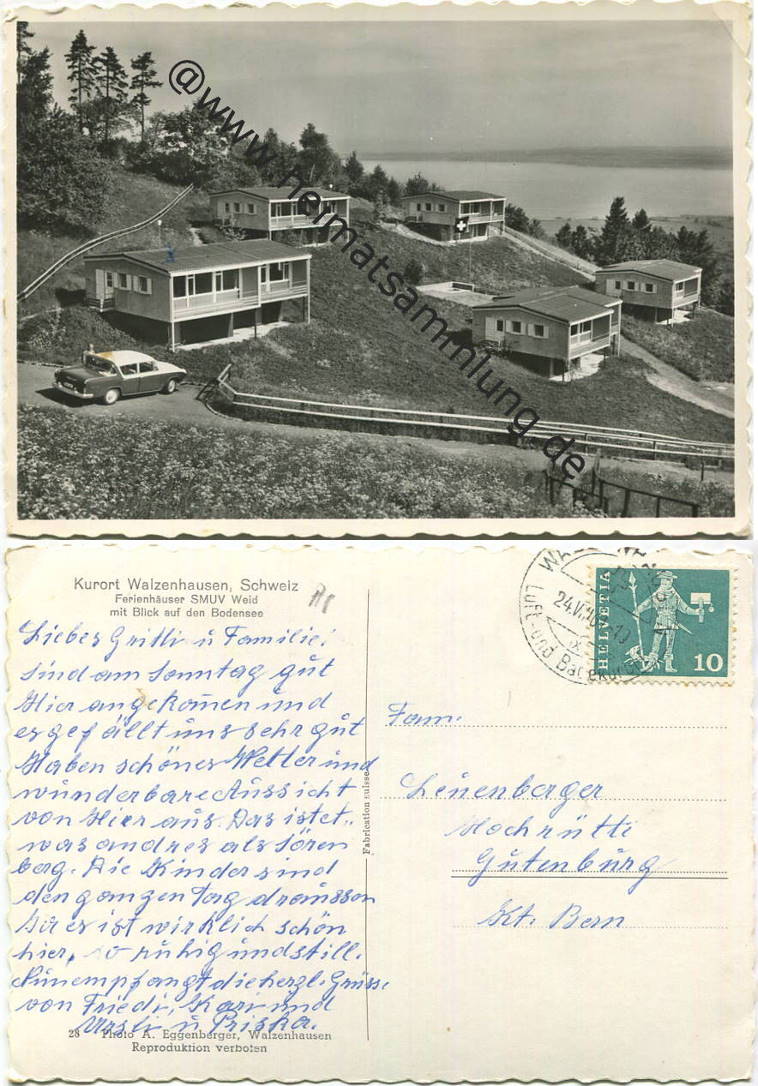 @www.heimatsammlung.de
Kurort Walzenhausen, Schweiz
Ferienhäuser SMUV Weid
mit Blick auf den Bodensee
Liebes Gritli u Familie!
Sind am Sonntag gut
Hier angekomen und
es gefällt uns sehr gut
Haben schönes Wetter und
wunderbare Aussicht
von Hier aus. Das ist et.
was andres als Sören
berg. Die Kinder sind
den ganzen Tag draussen
es ist wirklich schön
hier, so ruhig und still.
Nun empfangt die herzl. Grüsse
von Friedi, Kari und
Ursli u Priska.
28 Photo A. Eggenberger, Walzenhausen
Reproduktion verboten
Fabrication suisse
Luft- und Badekurort
24.VI.
HELVETIA
10
Fam.
Leuenberger
Hochrütti
Gutenburg
Kt. Bern